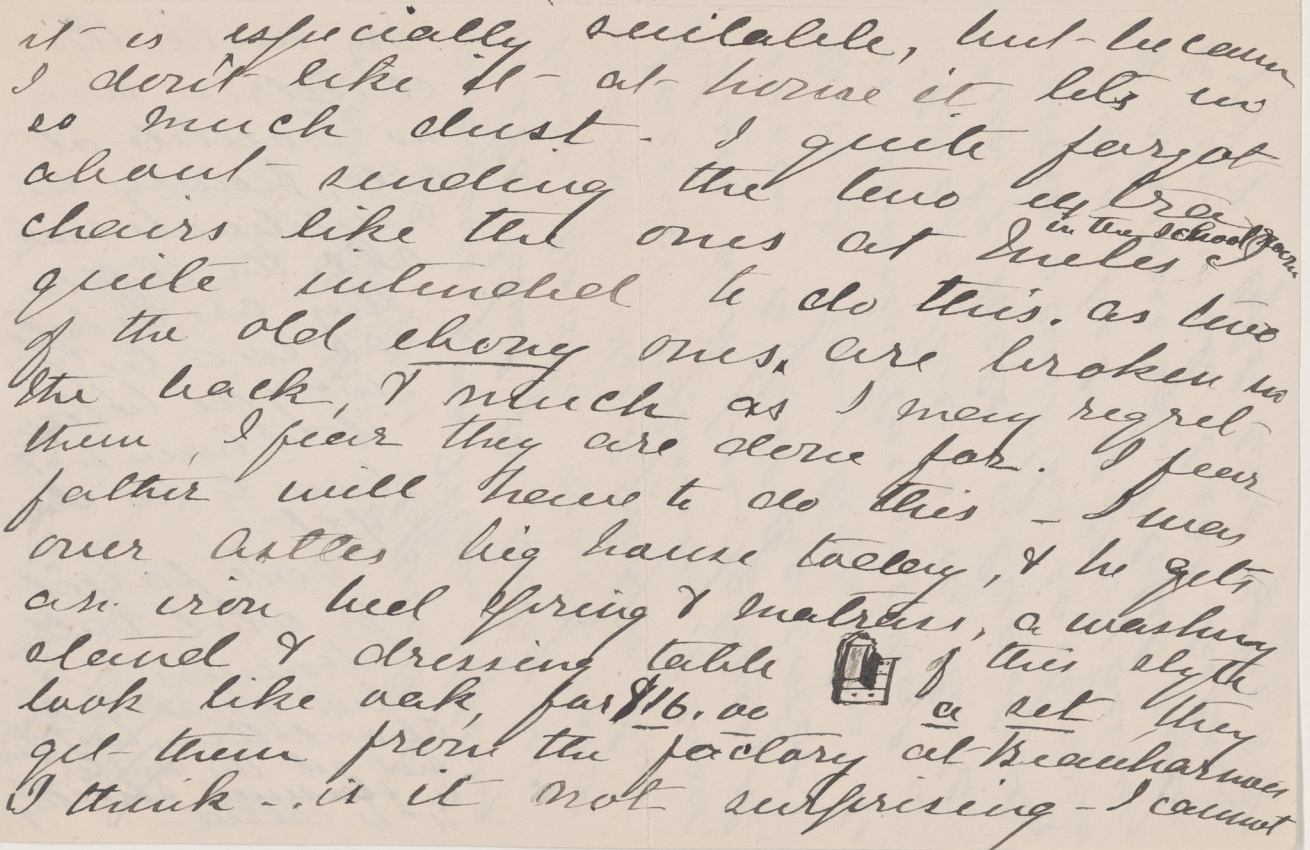 it is especially suitable, but because
I don't like it - at home it lets in
so much dust - I quite forgot
about sending the two extra
in the school room
chairs like the ones at Métis I
quite intended to do this. as two
of the old ebony ones, are broken in
the back, & much as I may regret
them, I fear they are done for. I fear
father will have to do this - I was
over Astles big house today, & he gets
an iron bed spring & matrass, a washing
stand & dressing table of this style
look like oak, for $16.00 a set they
get them from the factory at Beauharnois
I think - . is it not surprising - I cannot